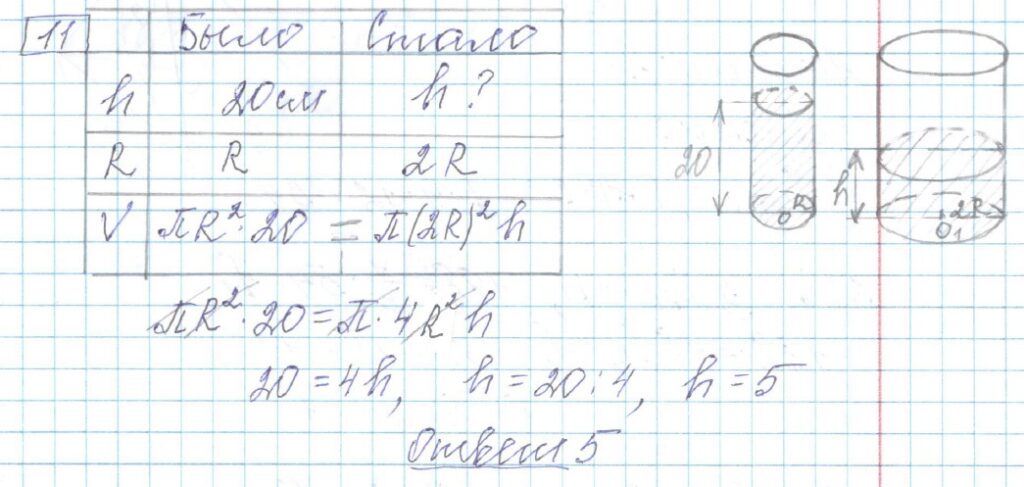 11
Было Стало
h 20 см h?
R R 2R
V πR²·20 = π(2R)²h
20 R O
h 2R O₁
πR²·20 = π·4R²h
20 = 4h, h = 20:4, h = 5
Ответ 5